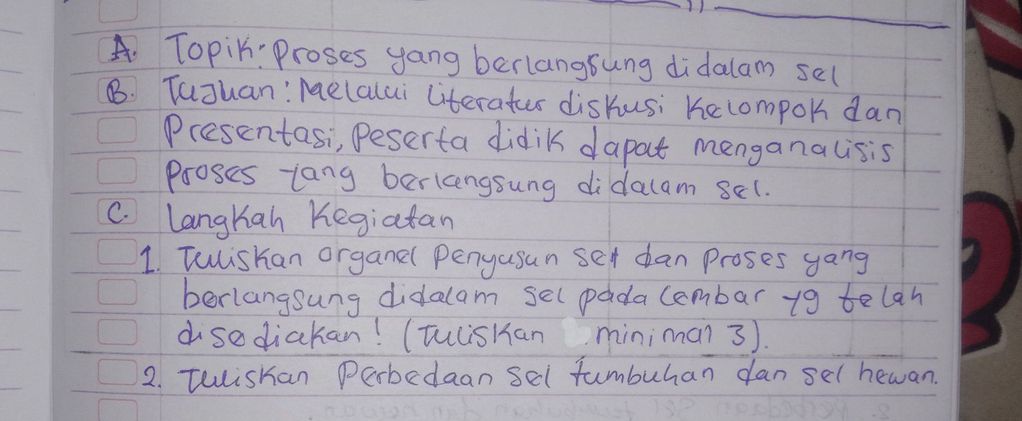 A. Topik: Proses yang berlangsung didalam sel
B. Tujuan: Melalui literatur diskusi kelompok dan
Presentasi, Peserta didik dapat menganalisis
Proses yang berlangsung didalam sel.
C. Langkah Kegiatan
1. Tuliskan organel Penyusun sel dan Proses yang
berlangsung didalam sel pada lembar yg telah
disediakan! (Tuliskan minimal 3).
2. Tuliskan Perbedaan sel tumbuhan dan sel hewan.